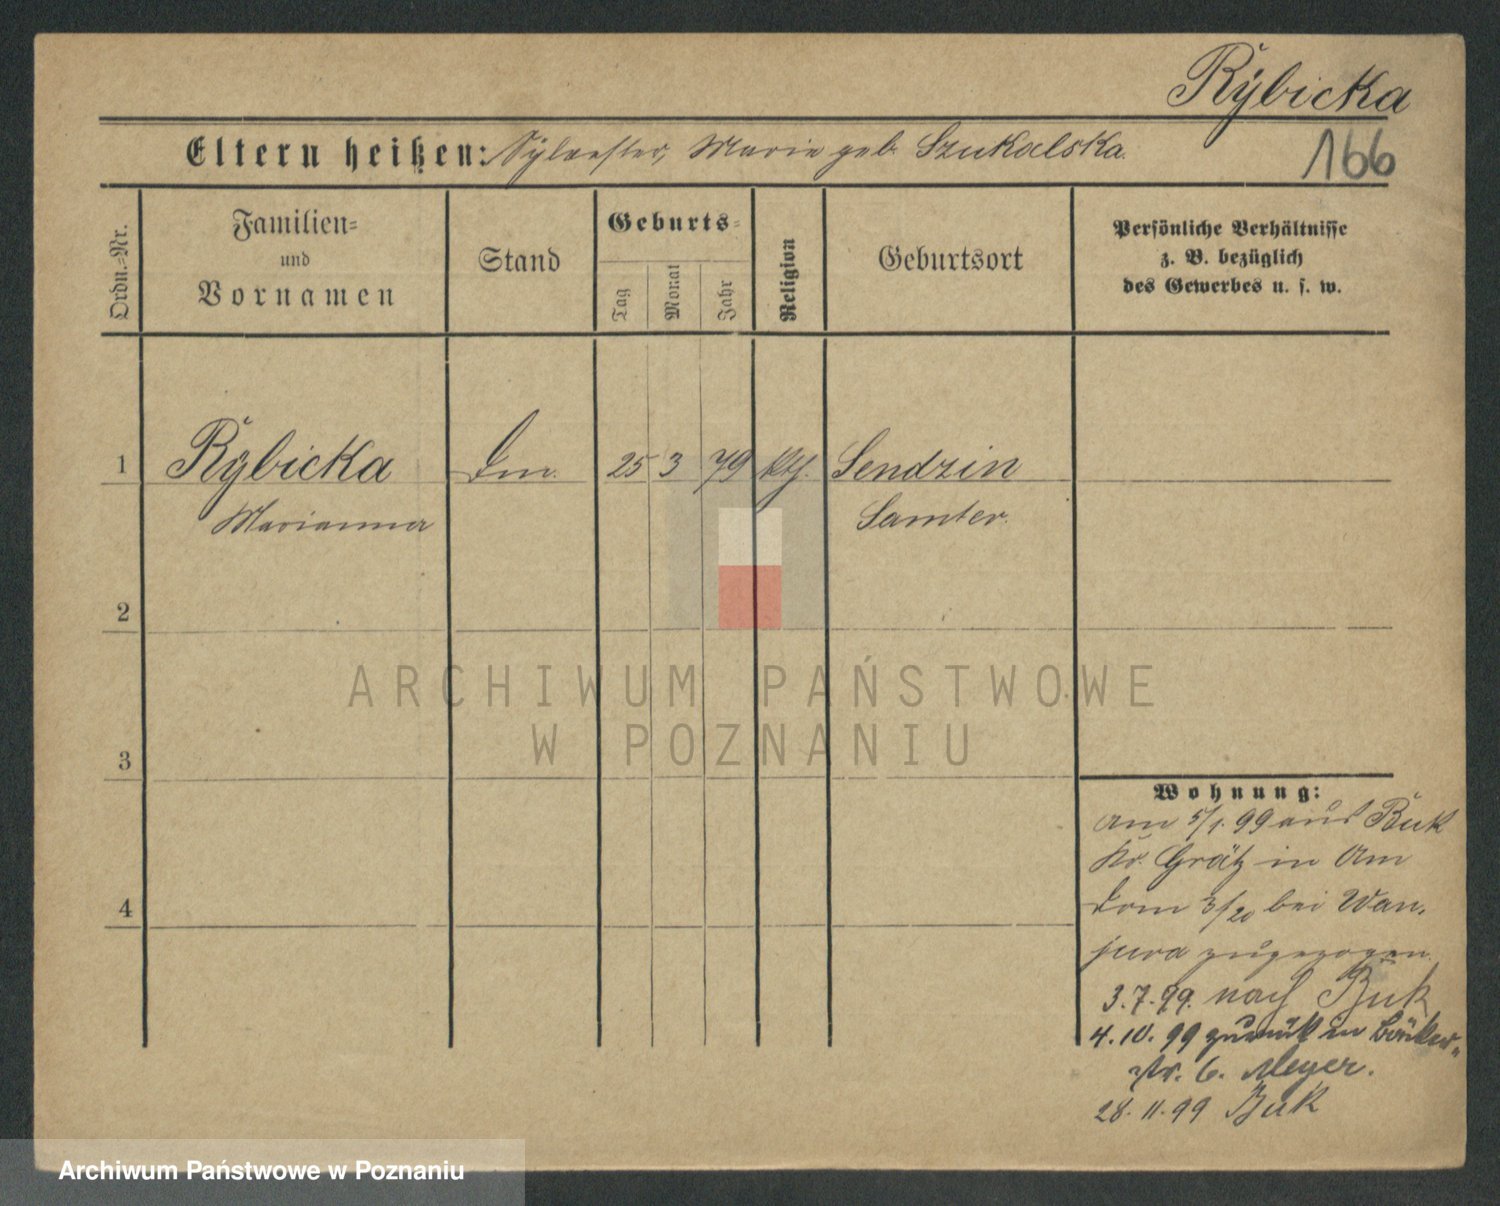 Rÿbicka
Eltern heißen: Sÿlvester, Marie geb. Szukalska.
166
Ordn.-Nr.
Familien-
und
Vornamen
Stand
Geburts-
Tag
Monat
Jahr
Religion
Geburtsort
Persönliche Verhältnisse
z. B. bezüglich
des Gewerbes u. s. w.
1 Rÿbicka 25 3 79 kth. Sendzin
Marianna Samter.
2
3
4
ARCHIWUM PAŃSTWOWE
W POZNANIU
Wohnung:
Am 5/1. 99 aus Buk
Kr. Grätz in Am
Dom 3/20 bei Wan,
jura zugezogen.
3. 7. 99. nach Buk
4. 10. 99 zurück in Bäcker-
str. 6. Meyer.
28. 11. 99 Buk
Archiwum Państwowe w Poznaniu